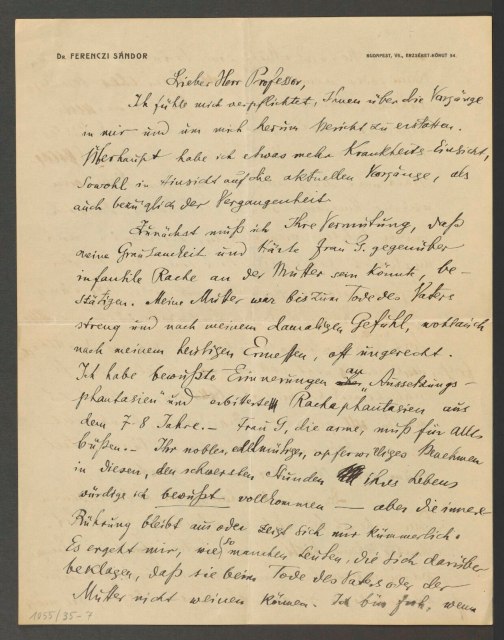 Dr. FERENCZI SÁNDOR
BUDAPEST, VII., ERZSÉBET-KÖRUT 54.
Lieber Herr Professor,
Ich fühle mich verpflichtet, Ihnen über die Vorgänge
in mir und um mich herum Bericht zu erstatten.
Überhaupt habe ich etwas mehr Krankheits-Einsicht,
sowohl in Hinsicht auf die aktuellen Vorgänge, als
auch bezüglich der Vergangenheit.
Zunächst muß ich Ihre Vermutung, daß
meine Grausamkeit und Härte Frau G. gegenüber
infantile Rache an der Mutter sein könnte, be-
stätigen. Meine Mutter war bis zum Tode des Vaters
streng und nach meinem damaligen Gefühl, wohl auch
nach meinem heutigen Ermessen, oft ungerecht.
Ich habe bewußte Erinnerungen an „Aussetzungs-
phantasien" und Rachephantasien aus
dem 7-8 Jahre. – Frau G, die arme, muß für Alles
büßen. – Ihr nobles, edelmütiges, opferwilliges Benehmen
in diesen, den schwersten Stunden ihres Lebens
würdige ich bewußt vollkommen – aber die innere
Rührung bleibt aus oder zeigt sich nur kümmerlich.
Es ergeht mir, wie so manchen Leuten, die sich darüber
beklagen, daß sie beim Tode des Vaters oder der
Mutter nicht weinen können. Ich bin froh, wenn
1055/35-7